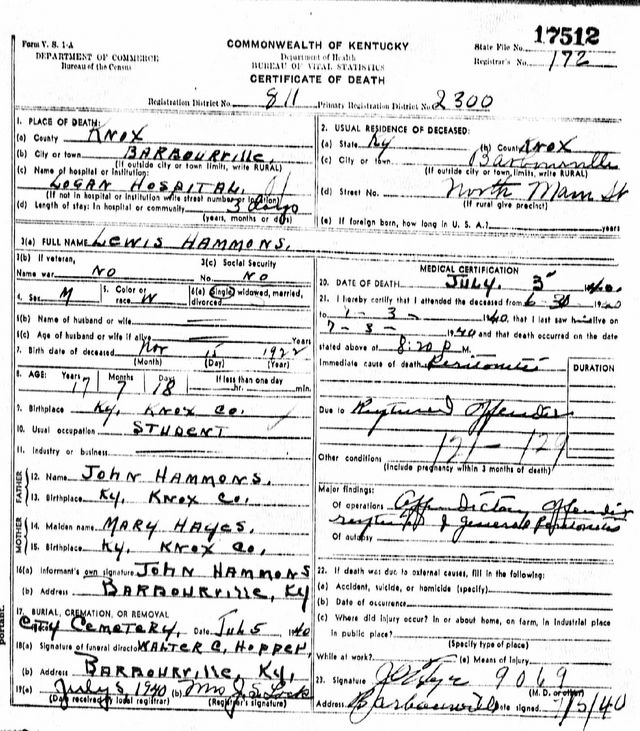 17512
Form V. S. 1-A
COMMONWEALTH OF KENTUCKY
State File No.
DEPARTMENT OF COMMERCE
Department of Health
Registrar's No. 172
Bureau of the Census
BUREAU OF VITAL STATISTICS
CERTIFICATE OF DEATH
Registration District No. 811 Primary Registration District No. 2300
1. PLACE OF DEATH:
(a) County KNOX
(b) City or town BARBOURVILLE,
(If outside city or town limits, write RURAL)
(c) Name of hospital or institution:
LOGAN HOSPITAL,
(If not in hospital or institution write street number or location)
(d) Length of stay: In hospital or community 3 days
(years, months or days)
2. USUAL RESIDENCE OF DECEASED:
(a) State Ky (b) County Knox
(c) City or town Barbourville
(If outside city or town limits, write RURAL)
(d) Street No. North Main St
(If rural give precinct)
(e) If foreign born, how long in U. S. A.? years
3(a) FULL NAME LEWIS HAMMONS.
3(b) If veteran, 3(c) Social Security
Name war NO No. NO
4. Sex M 5. Color or race W 6(a) Single, widowed, married, divorced
6(b) Name of husband or wife
6(c) Age of husband or wife if alive Years
7. Birth date of deceased Nov 15 1922
(Month) (Day) (Year)
8. AGE: Years 17 Months 7 Days 18 If less than one day
hr. min.
9. Birthplace KY, KNOX CO.
10. Usual occupation STUDENT
11. Industry or business
FATHER
12. Name JOHN HAMMONS.
13. Birthplace KY, KNOX CO.
MOTHER
14. Maiden name MARY HAYES.
15. Birthplace KY, KNOX CO.
16(a) Informant's own signature JOHN HAMMONS
(b) Address BARBOURVILLE, KY
17. BURIAL, CREMATION, OR REMOVAL
CITY CEMETERY, Date JUL 5 1940
18(a) Signature of funeral director WALTER C. HOPPER,
(b) Address BARBOURVILLE, KY,
19(a) July 5, 1940 (b) Mrs
(Day received by local registrar) (Registrar's signature)
MEDICAL CERTIFICATION
20. DATE OF DEATH JULY. 3 1940.
21. I hereby certify that I attended the deceased from 6-30- 1940
to 3- 1940, that I last saw him alive on
7-3- 1940 and that death occurred on the date
stated above at 8:20 P M.
Immediate cause of death Peritonitis
DURATION
Due to Ruptured
121-129
Other conditions
(Include pregnancy within 3 months of death)
Major findings:
Of operations
general Peritonitis
Of autopsy
22. If death was due to external causes, fill in the following:
(a) Accident, suicide, or homicide (specify)
(b) Date of occurrence
(c) Where did injury occur? In or about home, on farm, in industrial place
in public place?
(Specify type of place)
While at work? (e) Means of Injury
23. Signature 9069
(M. D. or other)
Address Barbourville Date signed 7/5/40